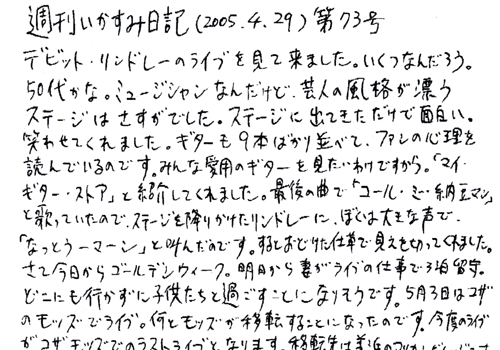 週刊いかすみ日記(2005.4.29)第73号
デビット・リンドレーのライブを見て来ました。いくつなんだろう。
50代かな。ミュージシャンなんだけど、芸人の風格が漂う
ステージはさすがでした。ステージに出てきただけで面白い。
笑わせてくれました。ギターも9本ばかり並べて、ファンの心理を
読んでいるのです。みんな愛用のギターを見たいわけですから。「マイ・
ギター・ストア」と紹介してくれました。最後の曲で「コール・ミー・納豆マン」
と歌っていたので、ステージを降りかけたリンドレーに、ぼくは大きな声で、
「なっとうーマーン」と叫んだのです。するとおどけた仕草で見えを切ってくれました。
さて今日からゴールデンウィーク。明日から妻がライブの仕事で3泊留守。
どこにも行かずに子供たちと過ごすことになりそうです。5月3日はコザ
のモッズでライブ。何とモッズが移転することになったのです。今度のライブ
がコザモッズでのラストライブとなります。移転先は